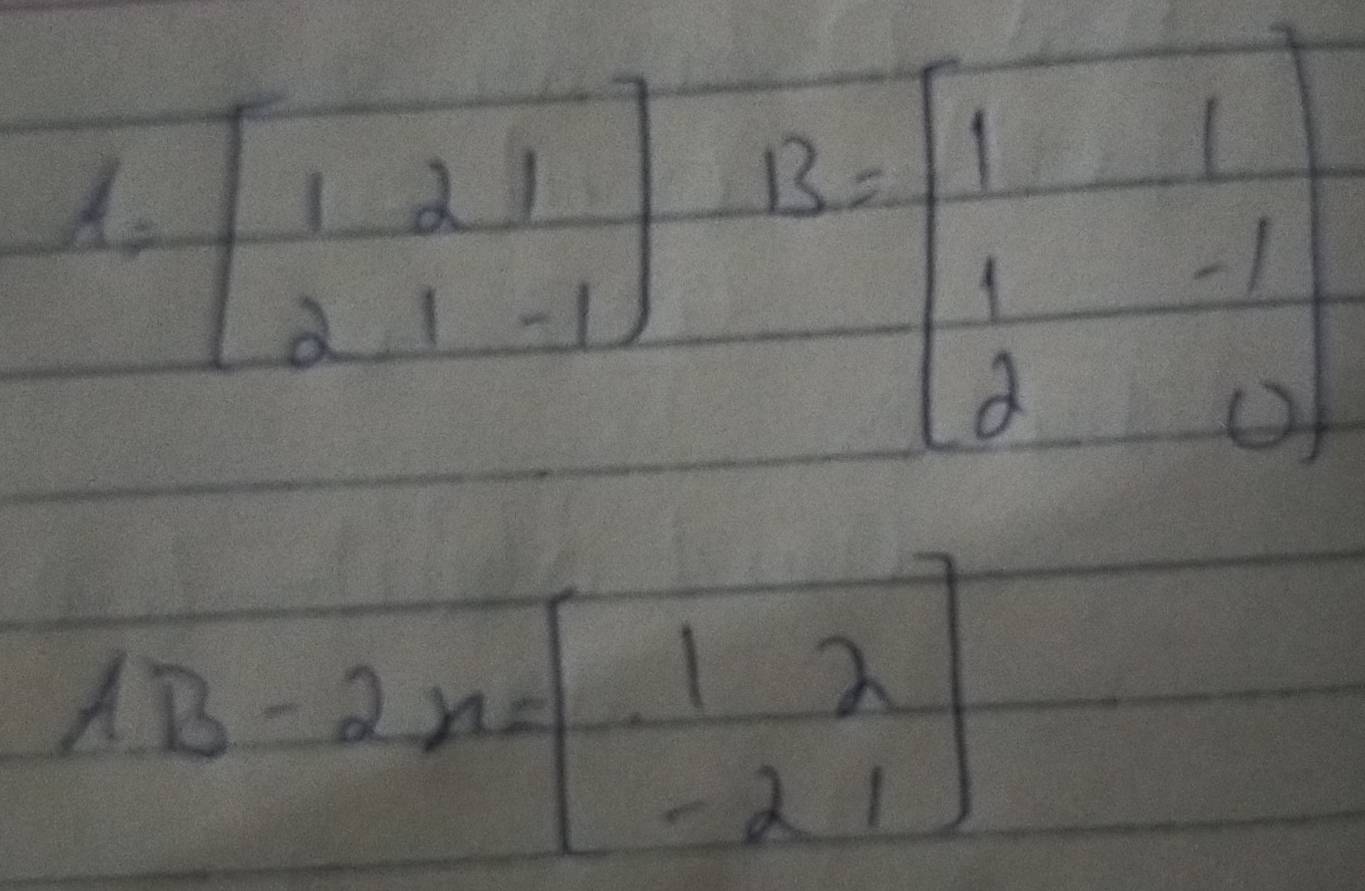 A = [ 1 2 1 B = [ 1 1
2 1 -1 ] 1 -1
2 0 ]
AB - 2x = [ 1 2
-2 1 ]